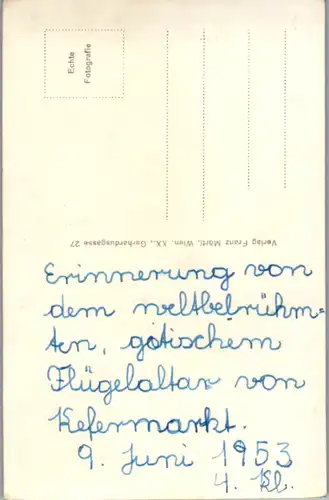 Echte
Fotografie
Verlag Franz Mörtl, Wien, XX., Gerhardusgasse 27
Erinnerung von
dem weltbelrühm-
ten, gotischem
Flügelaltar von
Kefermarkt.
9. Juni 1953
4. Kl.